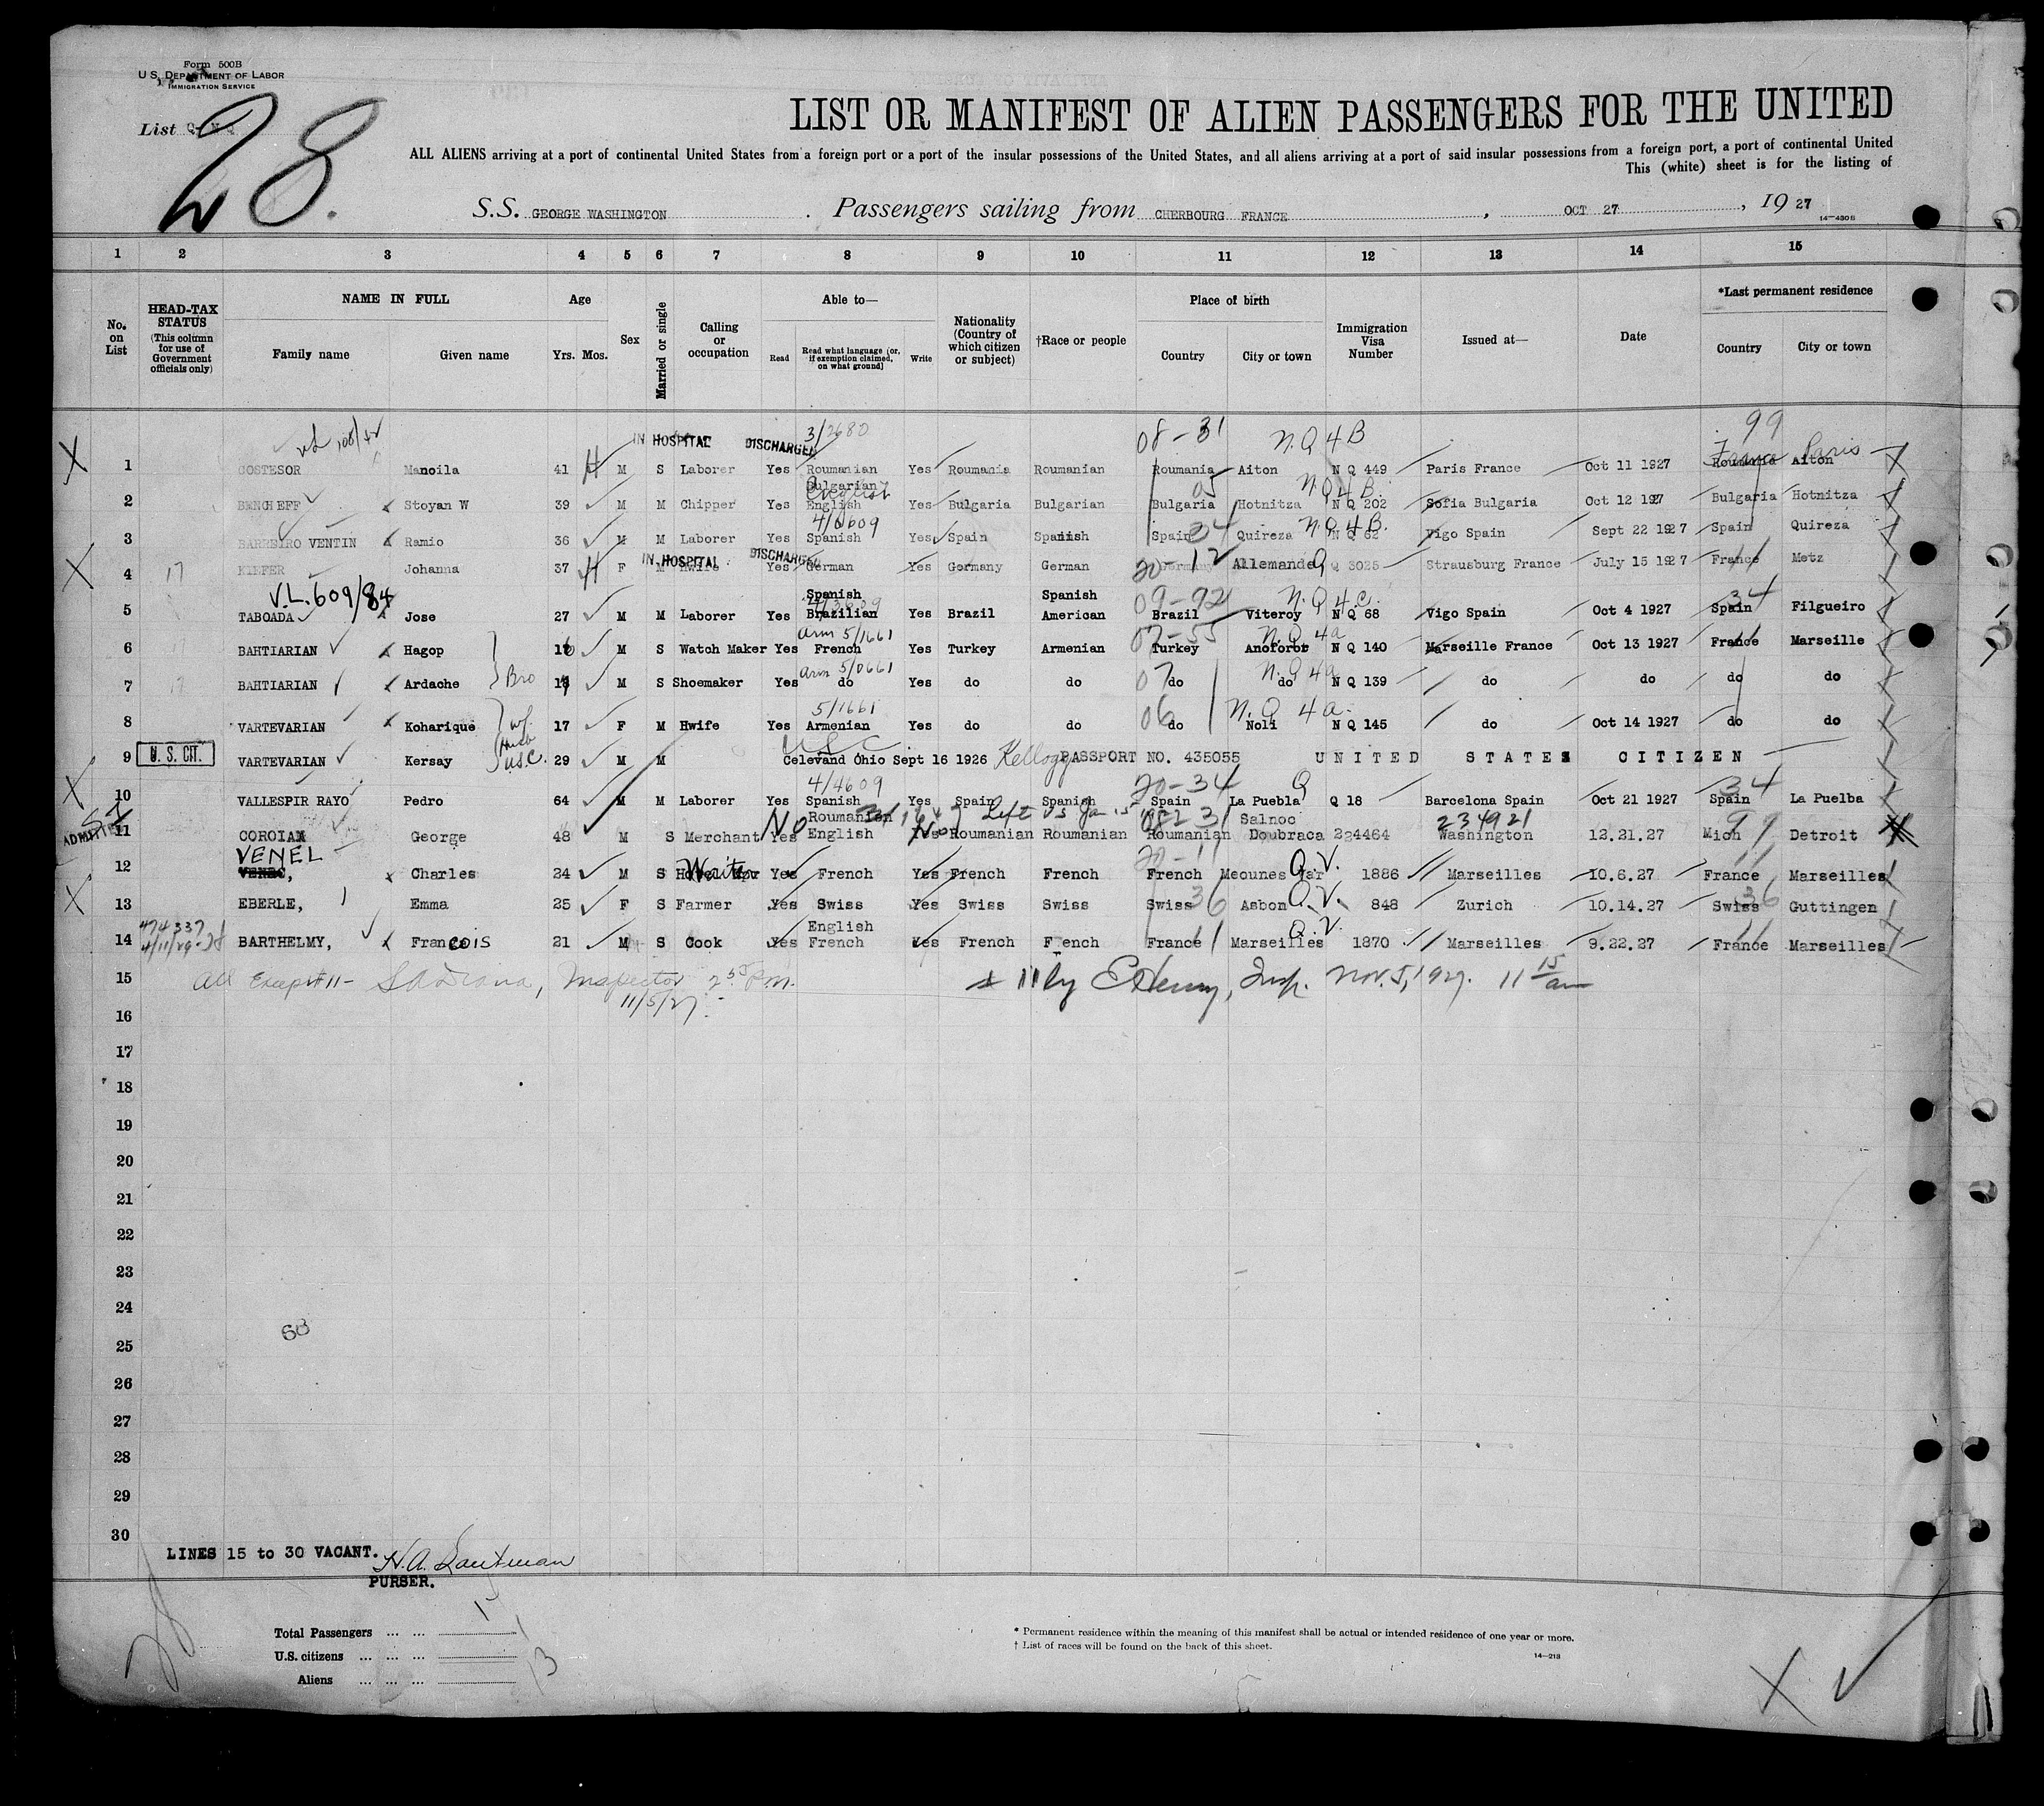 Form 500B
U.S. DEPARTMENT OF LABOR
IMMIGRATION SERVICE
List
28.
LIST OR MANIFEST OF ALIEN PASSENGERS FOR THE UNITED
ALL ALIENS arriving at a port of continental United States from a foreign port or a port of the insular possessions of the United States, and all aliens arriving at a port of said insular possessions from a foreign port, a port of continental United
This (white) sheet is for the listing of
S.S. GEORGE WASHINGTON . Passengers sailing from CHERBOURG FRANCE , OCT 27 , 19 27
14-430 B
1 2 3 4 5 6 7 8 9 10 11 12 13 14 15
No. on List
HEAD-TAX STATUS (This column for use of Government officials only)
NAME IN FULL
Family name Given name
Age
Yrs. Mos.
Sex
Married or single
Calling or occupation
Able to—
Read Read what language (or, if exemption claimed, on what ground) Write
Nationality (Country of which citizen or subject)
†Race or people
Place of birth
Country City or town
Immigration Visa Number
Issued at—
Date
*Last permanent residence
Country City or town
IN HOSPITAL DISCHARGED 3/2680 08-31 N.Q4B 99
France Paris
1 COSTESOR Manoila 41 H M S Laborer Yes Roumanian Yes Roumania Roumanian Roumania Aiton N Q 449 Paris France Oct 11 1927 Roumania Aiton
Bulgarian 05 N.Q4B.
2 BENCHEFF Stoyan W 39 M M Chipper Yes English Yes Bulgaria Bulgarian Bulgaria Hotnitza N Q 202 Sofia Bulgaria Oct 12 1927 Bulgaria Hotnitza
4/0609 34 N.Q4B.
3 BARREIRO VENTIN Ramio 36 M M Laborer Yes Spanish Yes Spain Spanish Spain Quireza N Q 62 Vigo Spain Sept 22 1927 Spain Quireza
IN HOSPITAL DISCHARGED 20-12
4 17 KIEFER Johanna 37 H F M Hwife Yes German Yes Germany German Germany Allemande Q 3025 Strausburg France July 15 1927 France Metz
V.L. 609/84 Spanish Spanish 09-92 N.Q4c. 34
5 TABOADA Jose 27 M M Laborer Yes Brazilian Yes Brazil American Brazil Viteroy N Q 68 Vigo Spain Oct 4 1927 Spain Filgueiro
Arm 5/1661 07-55 N.Q4a 11
6 17 BAHTIARIAN Hagop 16 M S Watch Maker Yes French Yes Turkey Armenian Turkey Anoforot N Q 140 Marseille France Oct 13 1927 France Marseille
Bro Arm 5/0661 07 N.Q4a
7 17 BAHTIARIAN Ardache M S Shoemaker Yes do Yes do do do do N Q 139 do do do do
5/1661 06 N.Q 4a.
8 VARTEVARIAN Koharique wf. 17 F M Hwife Yes Armenian Yes do do do Noli N Q 145 do Oct 14 1927 do do
USC
9 U. S. CIT. VARTEVARIAN Kersay Husb USC. 29 M M Celevand Ohio Sept 16 1926 Kellogg PASSPORT NO. 435055 UNITED STATES CITIZEN
4/4609 20-34 Q 34
10 VALLESPIR RAYO Pedro 64 M M Laborer Yes Spanish Yes Spain Spanish Spain La Puebla Q 18 Barcelona Spain Oct 21 1927 Spain La Puelba
SI ADMITTED No Roumanian No Left US Jan 15 Salnoc 234921 99
11 COROIAN George 48 M S Merchant Yes English Yes Roumanian Roumanian Roumanian Doubraca 224464 Washington 12.21.27 Mich Detroit
VENEL Waiter 20-11 Q.V. 11
12 VENEC, Charles 24 M S Yes French Yes French French French Meounes Var 1886 Marseilles 10.6.27 France Marseilles
36 Q.V. 36
13 EBERLE, Emma 25 F S Farmer Yes Swiss Yes Swiss Swiss Swiss Asbon 848 Zurich 10.14.27 Swiss Guttingen
474337 English 11 Q.V. 11
4/11/29-
14 BARTHELMY, Francois 21 M S Cook Yes French Yes French F ench France Marseilles 1870 Marseilles 9.22.27 France Marseilles
15 All Except 11 - Inspector 2 55 P.m. # 11 by Insp. Nov. 5, 1927. 11 15 am
11/5/27.
16
17
18
19
20
21
22
23
24
68
25
26
27
28
29
30
LINES 15 to 30 VACANT.
PURSER.
28
Total Passengers ... ...
U.S. citizens ... ... ... 1
Aliens ... ... ... 13
* Permanent residence within the meaning of this manifest shall be actual or intended residence of one year or more.
† List of races will be found on the back of this sheet.
14-213